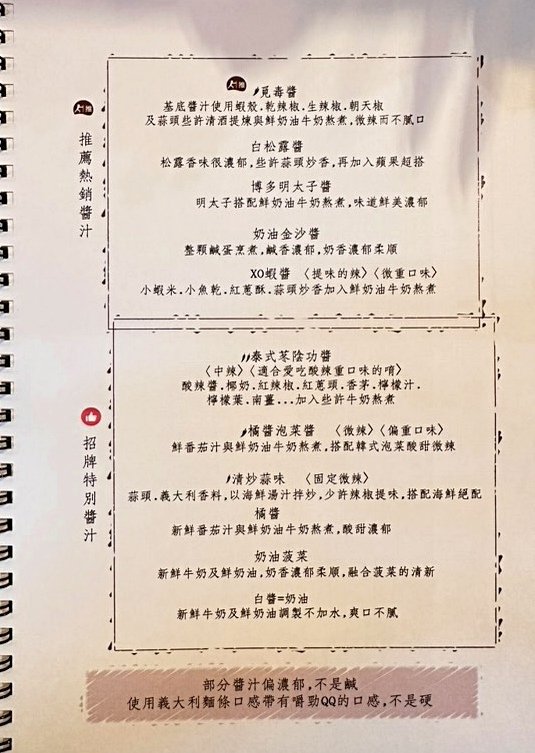 推薦熱銷醬汁
覓毒醬
基底醬汁使用蝦殼.乾辣椒.生辣椒.朝天椒
及蒜頭些許清酒提煉與鮮奶油牛奶熬煮,微辣而不膩口
白松露醬
松露香味很濃郁,些許蒜頭炒香,再加入蘋果超搭
博多明太子醬
明太子搭配鮮奶油牛奶熬煮,味道鮮美濃郁
奶油金沙醬
整顆鹹蛋烹煮,鹹香濃郁,奶香濃郁柔順
XO蝦醬 〈提味的辣〉〈微重口味〉
小蝦米.小魚乾.紅蔥酥.蒜頭炒香加入鮮奶油牛奶熬煮
招牌特別醬汁
泰式苳陰功醬
〈中辣〉〈適合愛吃酸辣重口味的唷〉
酸辣醬.椰奶.紅辣椒.紅蔥頭.香茅.檸檬汁.
檸檬葉.南薑...加入些許牛奶熬煮
橘醬泡菜醬 〈微辣〉〈偏重口味〉
鮮番茄汁與鮮奶油牛奶熬煮,搭配韓式泡菜酸甜微辣
清炒蒜味 〈固定微辣〉
蒜頭.義大利香料,以海鮮湯汁拌炒,少許辣椒提味,搭配海鮮絕配
橘醬
新鮮番茄汁與鮮奶油牛奶熬煮,酸甜濃郁
奶油菠菜
新鮮牛奶及鮮奶油,奶香濃郁柔順,融合菠菜的清新
白醬=奶油
新鮮牛奶及鮮奶油調製不加水,爽口不膩
部分醬汁偏濃郁,不是鹹
使用義大利麵條口感帶有嚼勁QQ的口感,不是硬